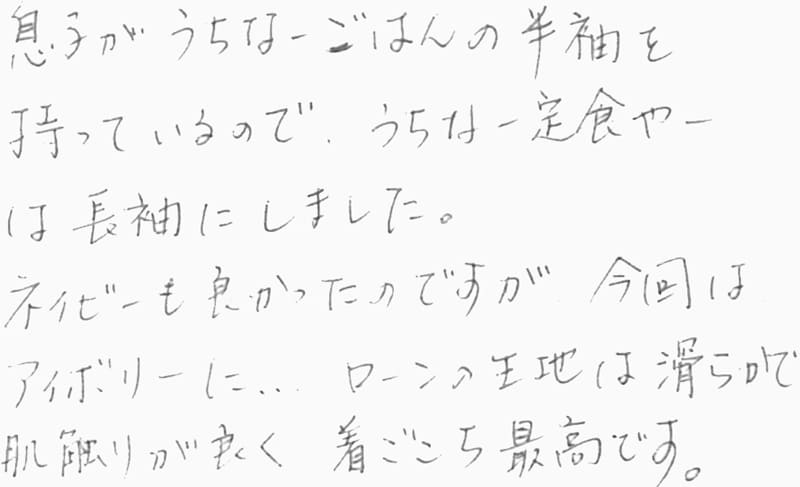 息子がうちなーごはんの半袖を
持っているので、うちなー定食やー
は長袖にしました。
ネイビーも良かったのですが、今回は
アイボリーに… ローンの生地は滑らかで
肌触りが良く、着ごこち最高です。